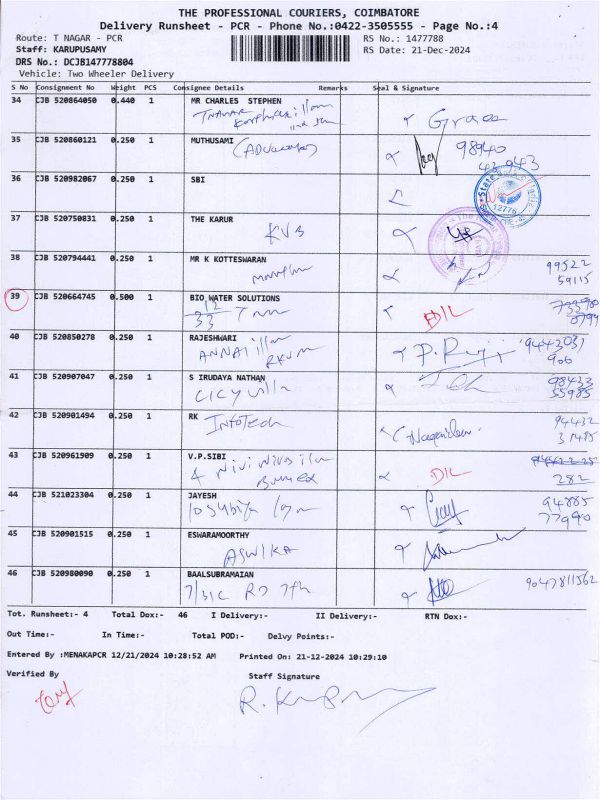 THE PROFESSIONAL COURIERS, COIMBATORE
Delivery Runsheet - PCR - Phone No.:0422-3505555 - Page No.:4
Route: T NAGAR - PCR RS No.: 1477788
Staff: KARUPUSAMY RS Date: 21-Dec-2024
DRS No.: DCJB147778804
Vehicle: Two Wheeler Delivery
S No Consignment No Weight PCS Consignee Details Remarks Seal & Signature
34 CJB 520864050 0.440 1 MR CHARLES STEPHEN
Grace
35 CJB 520860121 0.250 1 MUTHUSAMI 98940
36 CJB 520982067 0.250 1 SBI
12776
37 CJB 520750831 0.250 1 THE KARUR
KVB
38 CJB 520794441 0.250 1 MR K KOTTESWARAN 99522
59115
39 CJB 520664745 0.500 1 BIO WATER SOLUTIONS
DIL
40 CJB 520850278 0.250 1 RAJESHWARI 9443031
ANNAI illam P. Raji 906
41 CJB 520907047 0.250 1 S IRUDAYA NATHAN 98433
CICY villa 55985
42 CJB 520901494 0.250 1 RK 94432
InfoTech 31485
43 CJB 520961909 0.250 1 V.P.SIBI
DIL 282
44 CJB 521023304 0.250 1 JAYESH 94885
77990
45 CJB 520901515 0.250 1 ESWARAMOORTHY
ASWIKA
46 CJB 520980090 0.250 1 BAALSUBRAMAIAN 9047811562
7/31C RD 7th
Tot. Runsheet:- 4 Total Dox:- 46 I Delivery:- II Delivery:- RTN Dox:-
Out Time:- In Time:- Total POD:- Delvy Points:-
Entered By :MENAKAPCR 12/21/2024 10:28:52 AM Printed On: 21-12-2024 10:29:10
Verified By Staff Signature